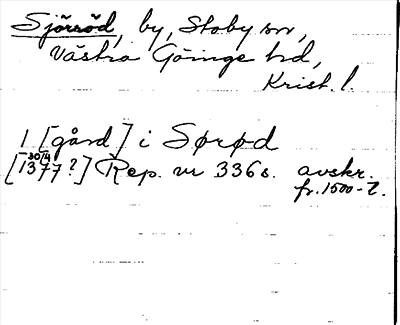 Sjörröd, by, Stoby sn,
Västra Göinge hd,
Krist. l.
1 [gård] i Sørød
[30/4 1377?] Rep. nr 336 s. avskr.
fr. 1500-t.